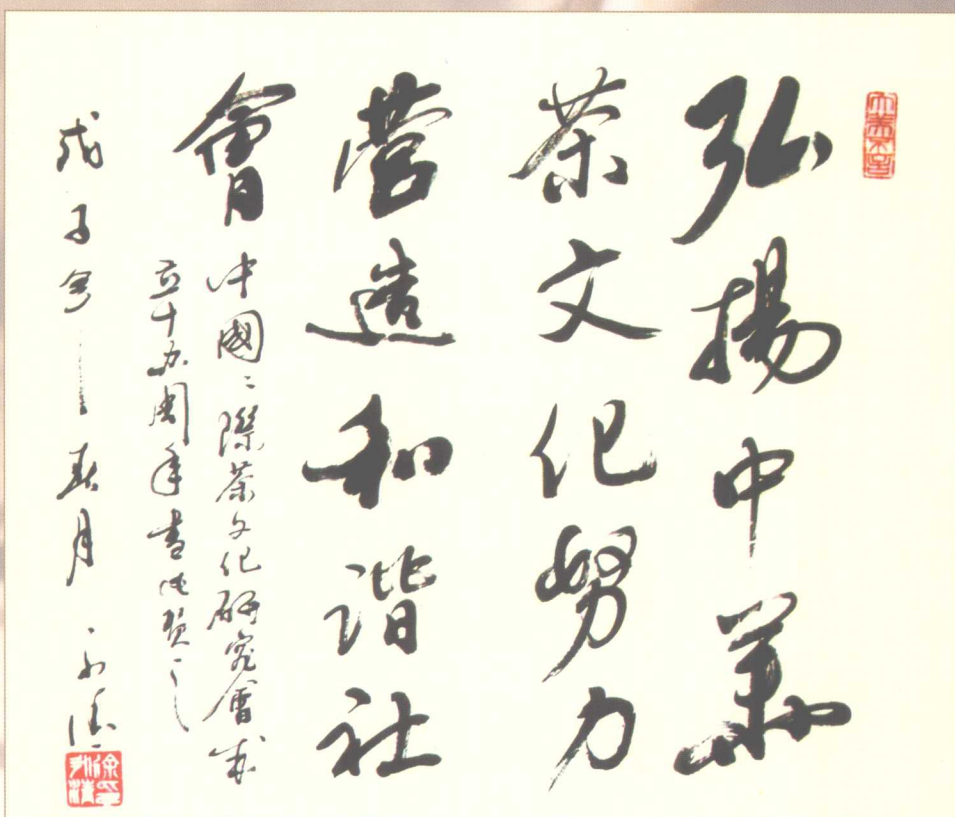 弘揚中華
茶文化努力
营造和谐社
會
中國〻際茶文化研究會成
立十五周年書此賀之
戊子年之春月